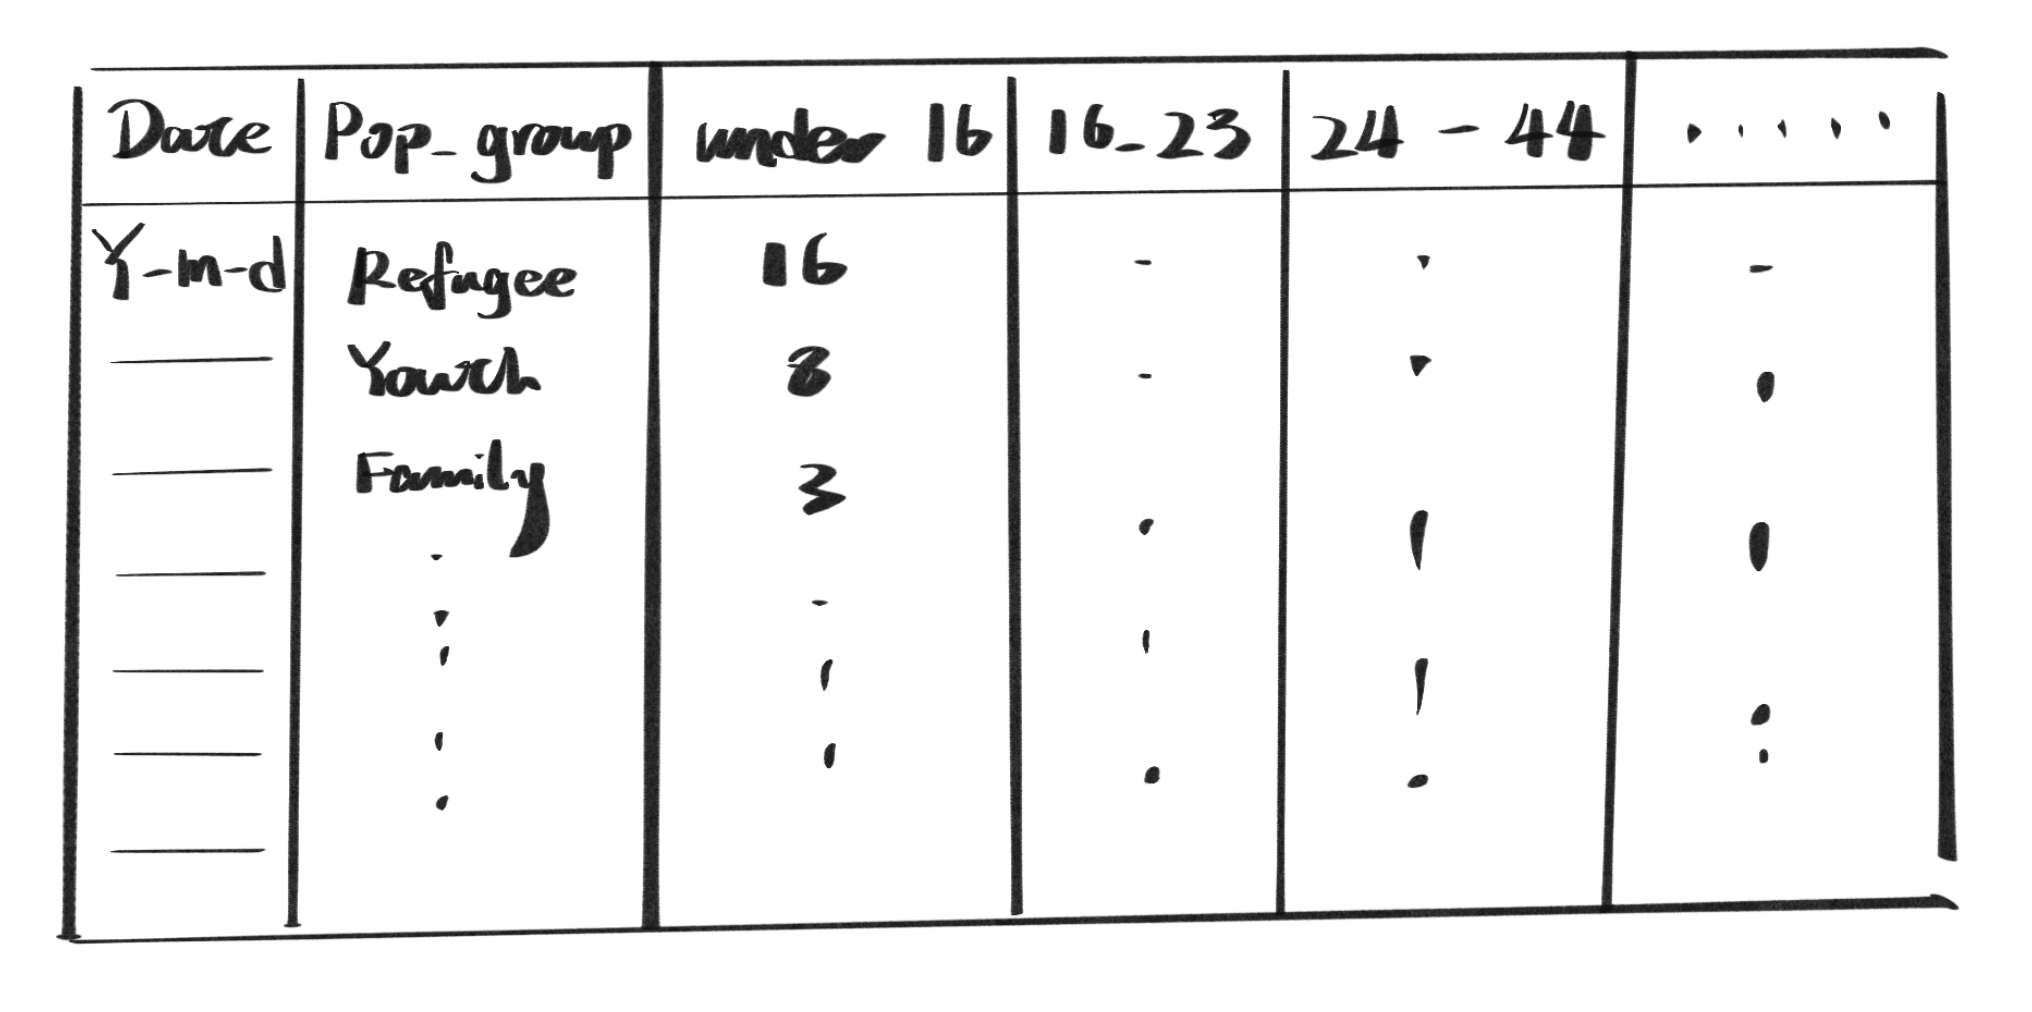 Date Pop_group under 16 16-23 24-44 .....
Y-m-d Refugee 16
Youth 8
Family 3